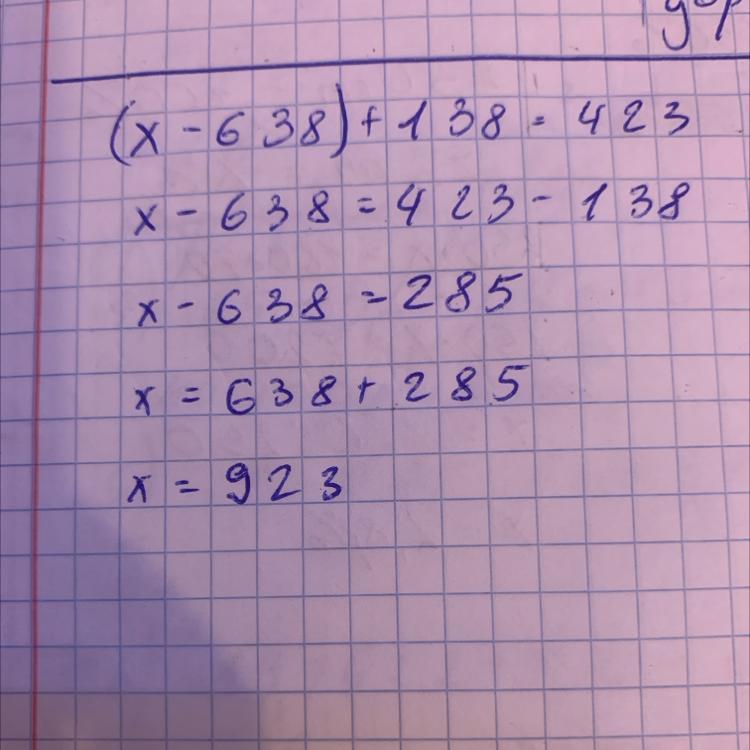 (x - 638) + 138 = 423
x - 638 = 423 - 138
x - 638 = 285
x = 638 + 285
x = 923